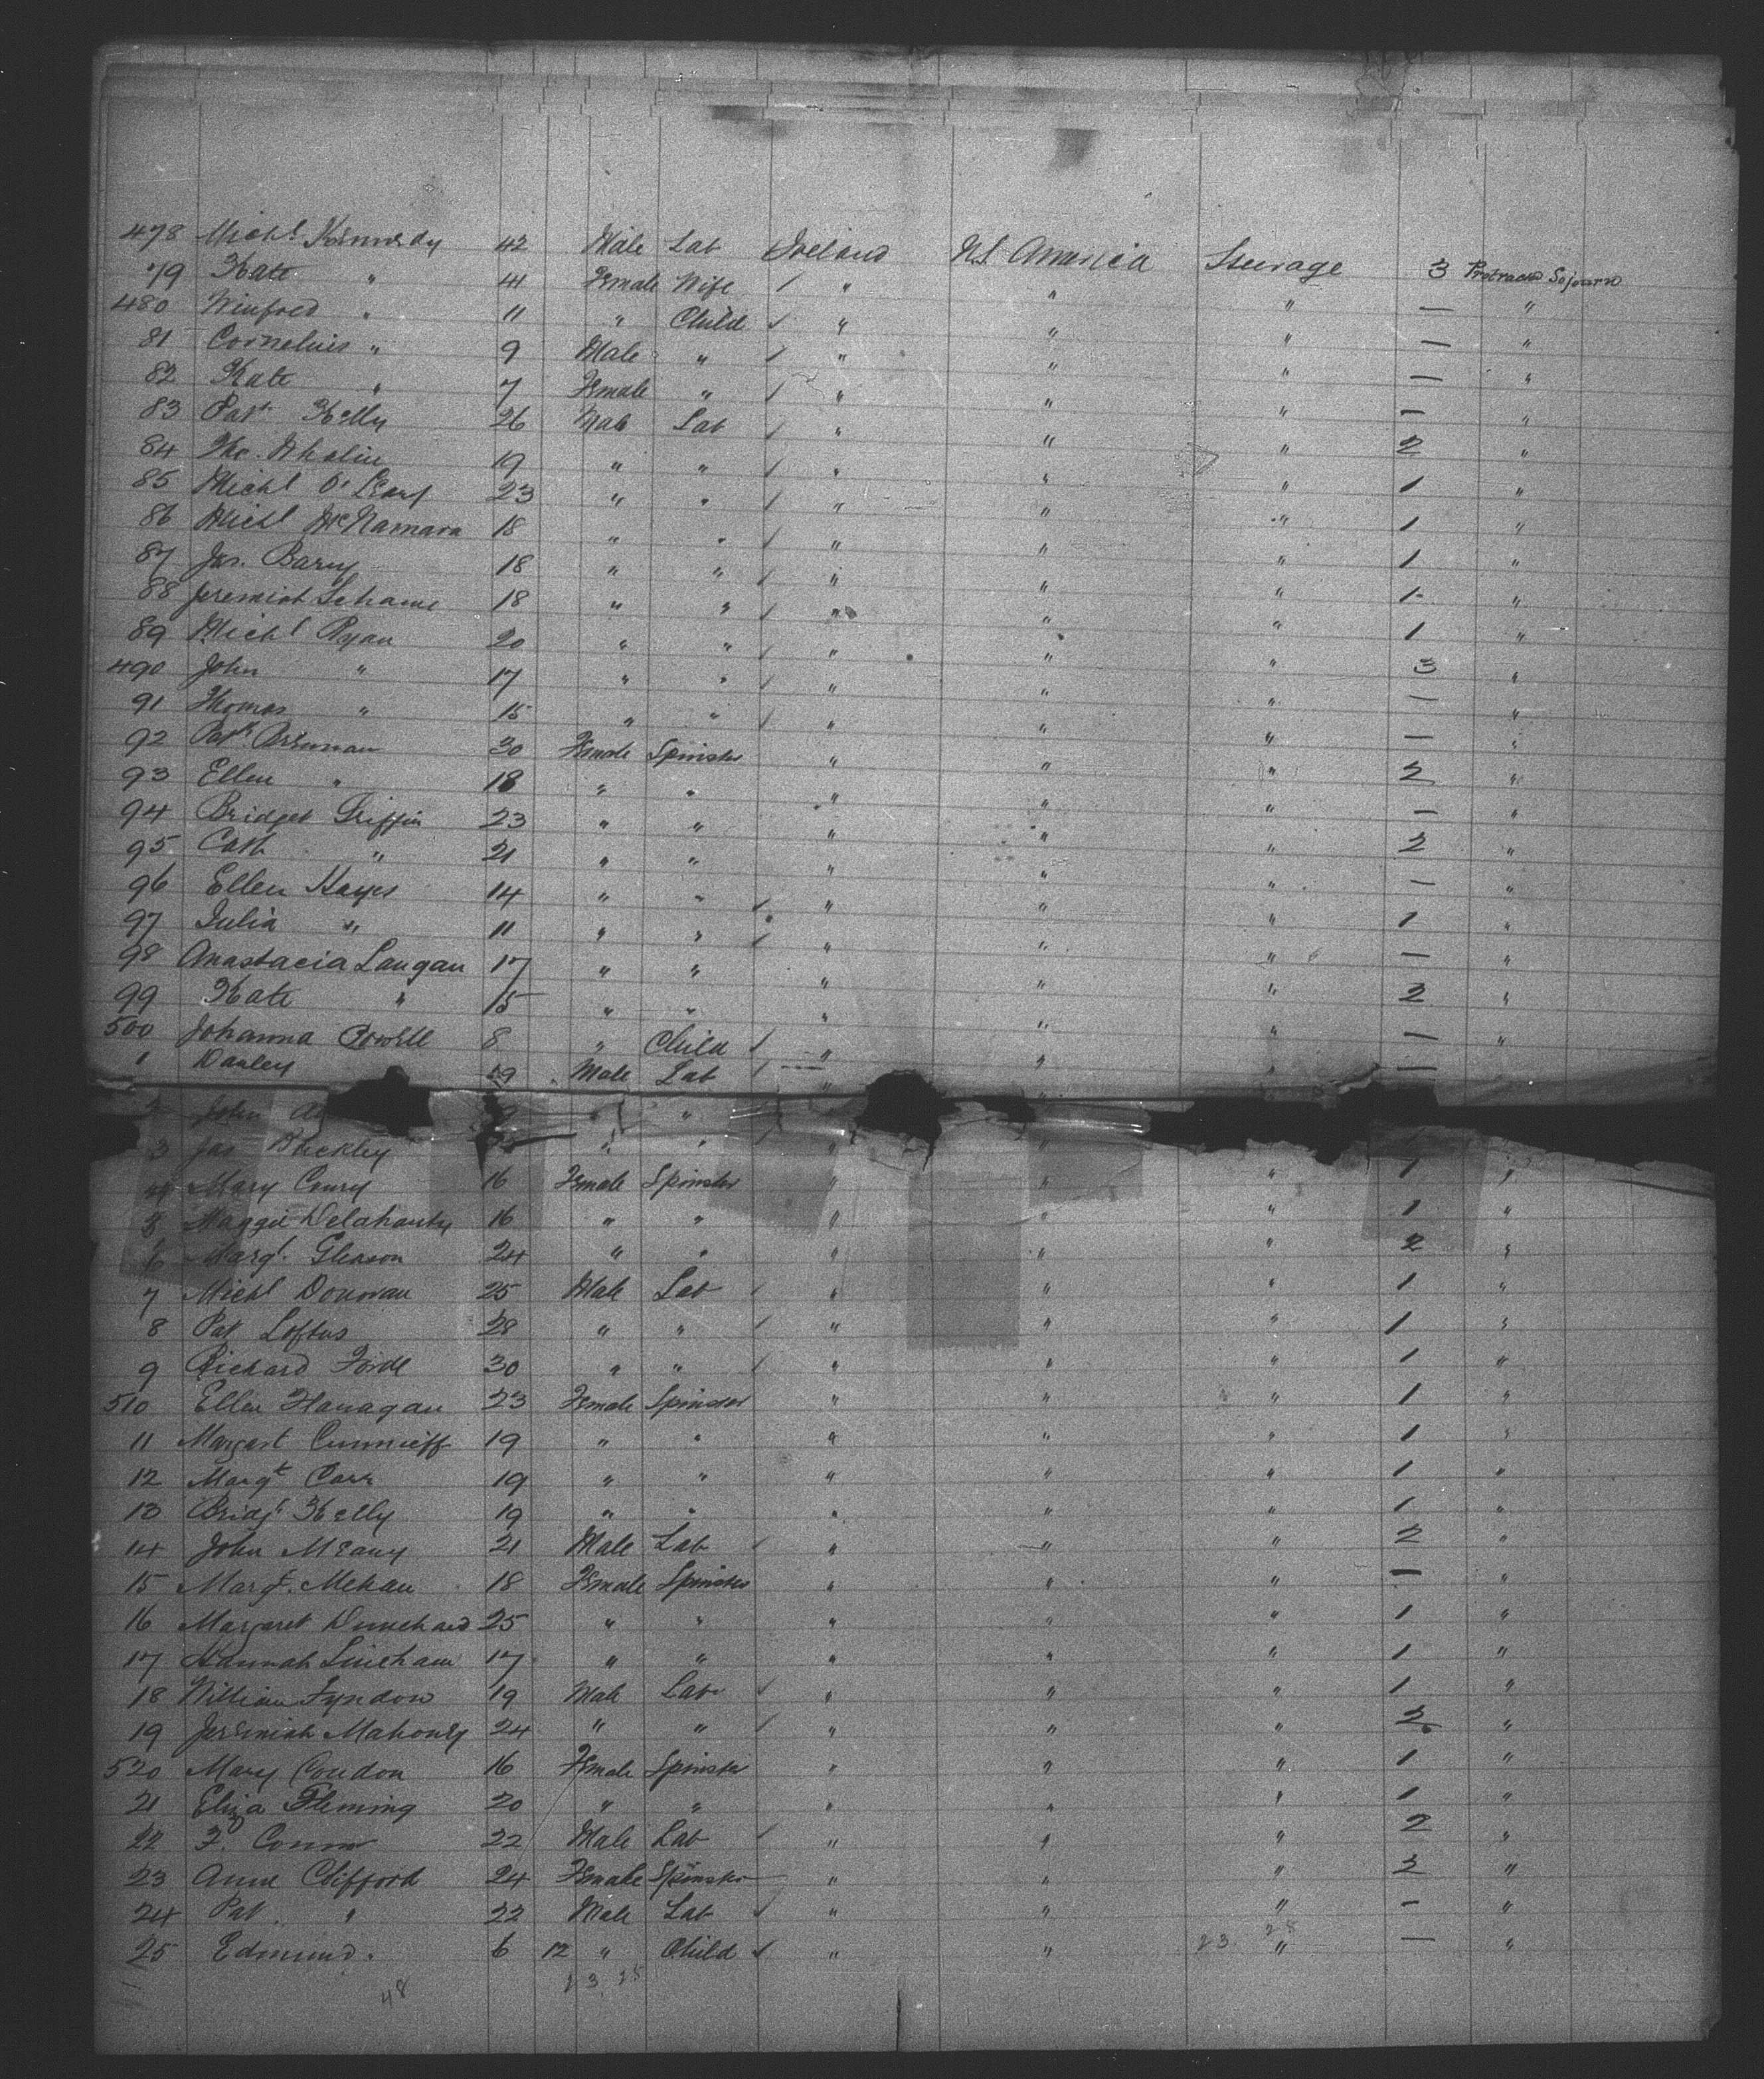 478 Michl. Kennedy 42 Male Lab Ireland U.S. America Steerage 3 Protracted Sojourn
79 Kate " 41 Female Wife / " " " — "
480 Winfred " 11 " Child ✓ " " " — "
81 Cornelius " 9 Male " ✓ " " " — "
82 Kate " 7 Female " / " " " — "
83 Pat. Kelly 26 Male Lab / " " " 2 "
84 Tho. Whalin 19 " " / " " " 1 "
85 Michl O'Leary 23 " " / " " " 1 "
86 Michl McNamara 18 " " / " " " 1 "
87 Jas. Barry 18 " " / " " " 1 "
88 Jeremiah Lehane 18 " " / " " " 1 "
89 Michl Ryan 20 " " / " " " 3 "
490 John " 17 " " / " " " — "
91 Thomas " 15 " " / " " " — "
92 Patk. Brennan 30 Female Spinster " " " 2 "
93 Ellen " 18 " " " " " — "
94 Bridget Griffin 23 " " " " " 2 "
95 Cath " 21 " " " " " — "
96 Ellen Hayes 14 " " ✓ " " " 1 "
97 Julia " 11 " " ✓ " " " — "
98 Anastacia Langan 17 " " " " " 2 "
99 Kate " 15 " " " " " — "
500 Johanna Powell 8 " Child / " " " — "
1 Danley 19 Male Lab / "
John " "
3 Jas Buckley " " "
Mary Coury 16 Female Spinster " " " 1 "
Maggie Delahunty 16 " " " " " 1 "
6 Margt. Gleason 24 " " " " " 2 "
7 Michl Donovan 25 Male Lab / " " " 1 "
8 Pat Loftus 28 " " / " " " 1 "
9 Richard Forde 30 " " / " " " 1 "
510 Ellen Flanagan 23 Female Spinster " " " 1 "
11 Margart Cunnieff 19 " " " " " 1 "
12 Margt Carr 19 " " " " " 1 "
13 Bridgt Kelly 19 " " " " " 1 "
14 John Meany 21 Male Lab / " " " 2 "
15 Margt. Mehan 18 Female Spinster " " " — "
16 Margaret 25 " " " " " 1 "
17 Hannah Linehan 17 " " " " " 1 "
18 William Lyndon 19 Male Lab ✓ " " " 1 "
19 Jeremiah Mahoney 24 " " / " " " 2 "
520 Mary Condon 16 Female Spinster " " " 1 "
21 Eliza Fleming 20 " " " " " 1 "
22 F. Connor 22 Male Lab / " " " 2 "
23 Anne Clifford 24 Female Spinster " " " 2 "
24 Pat. " 22 Male Lab ✓ " " " — "
25 Edmund. 6 12 " Child ✓ " " 23 28 " — "
48 23 25